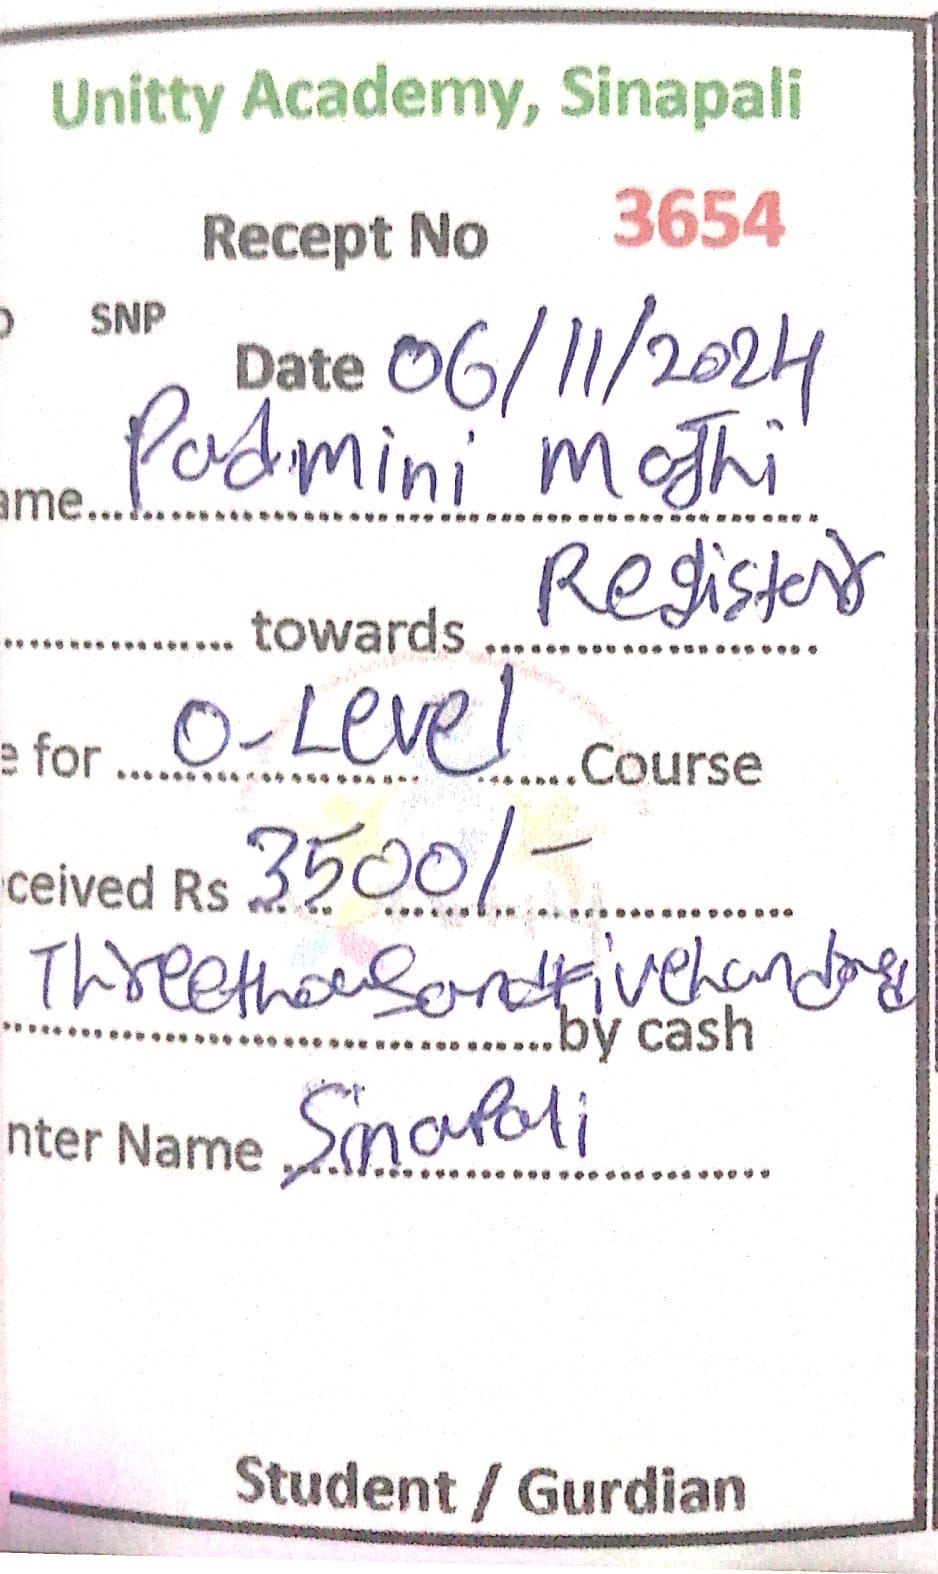 Unitty Academy, Sinapali
Recept No 3654
D SNP
Date 06/11/2024
ame.... Padmini Majhi
................ towards Register
e for O-Level Course
ceived Rs 3500/-
Threethousandfivehundred
by cash
nter Name Sinapali
Student / Gurdian